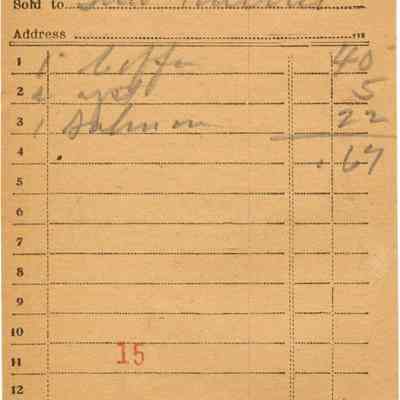 Sold to
Address
1 1 Coffee 40
2 5
3 1 Salmon 22
4 .67
5
6
7
8
9
10
11 15
12